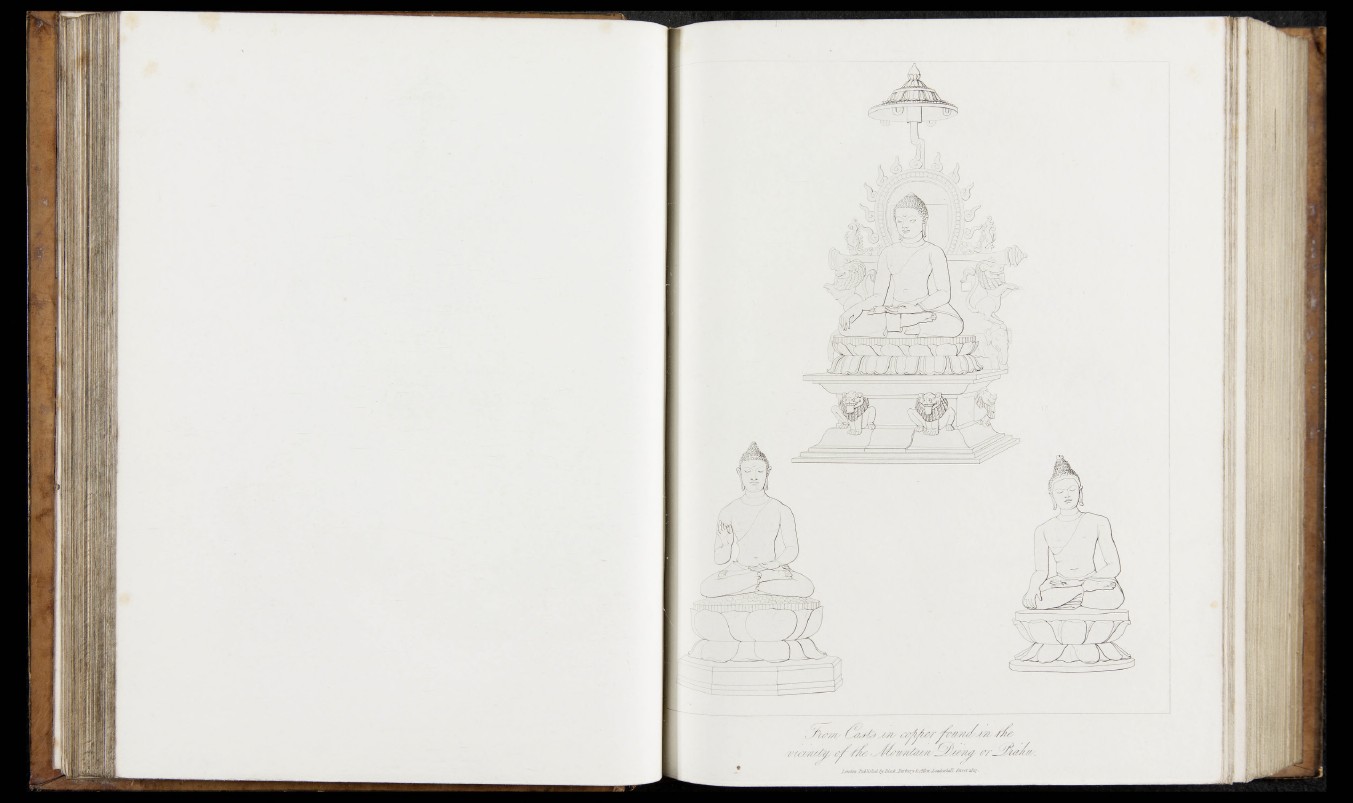 From Casts in copper found in the
vicinity of the Mountain Dieng or Prahu.
London. Published by Black, Parbury & Allen, Leadenhall Street 1817.